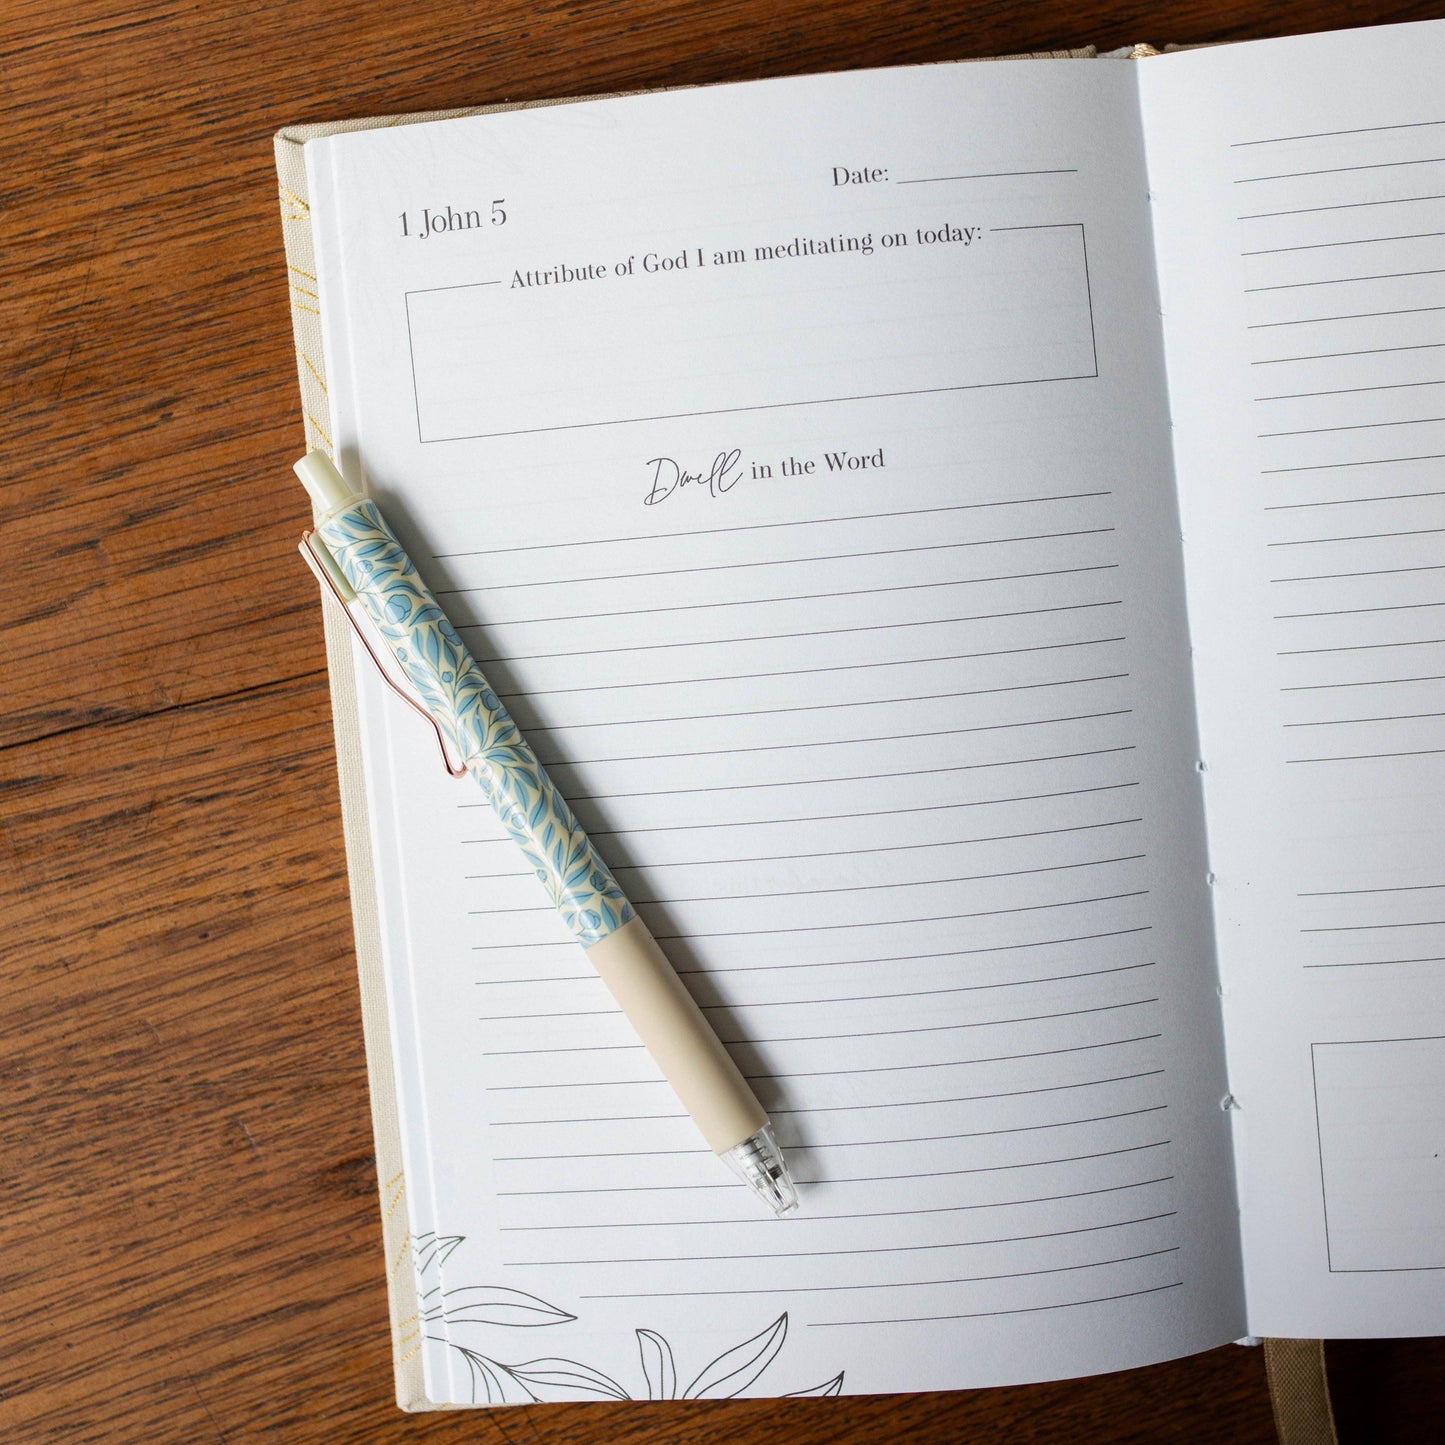 Date:
1 John 5
Attribute of God I am meditating on today:
Dwell in the Word